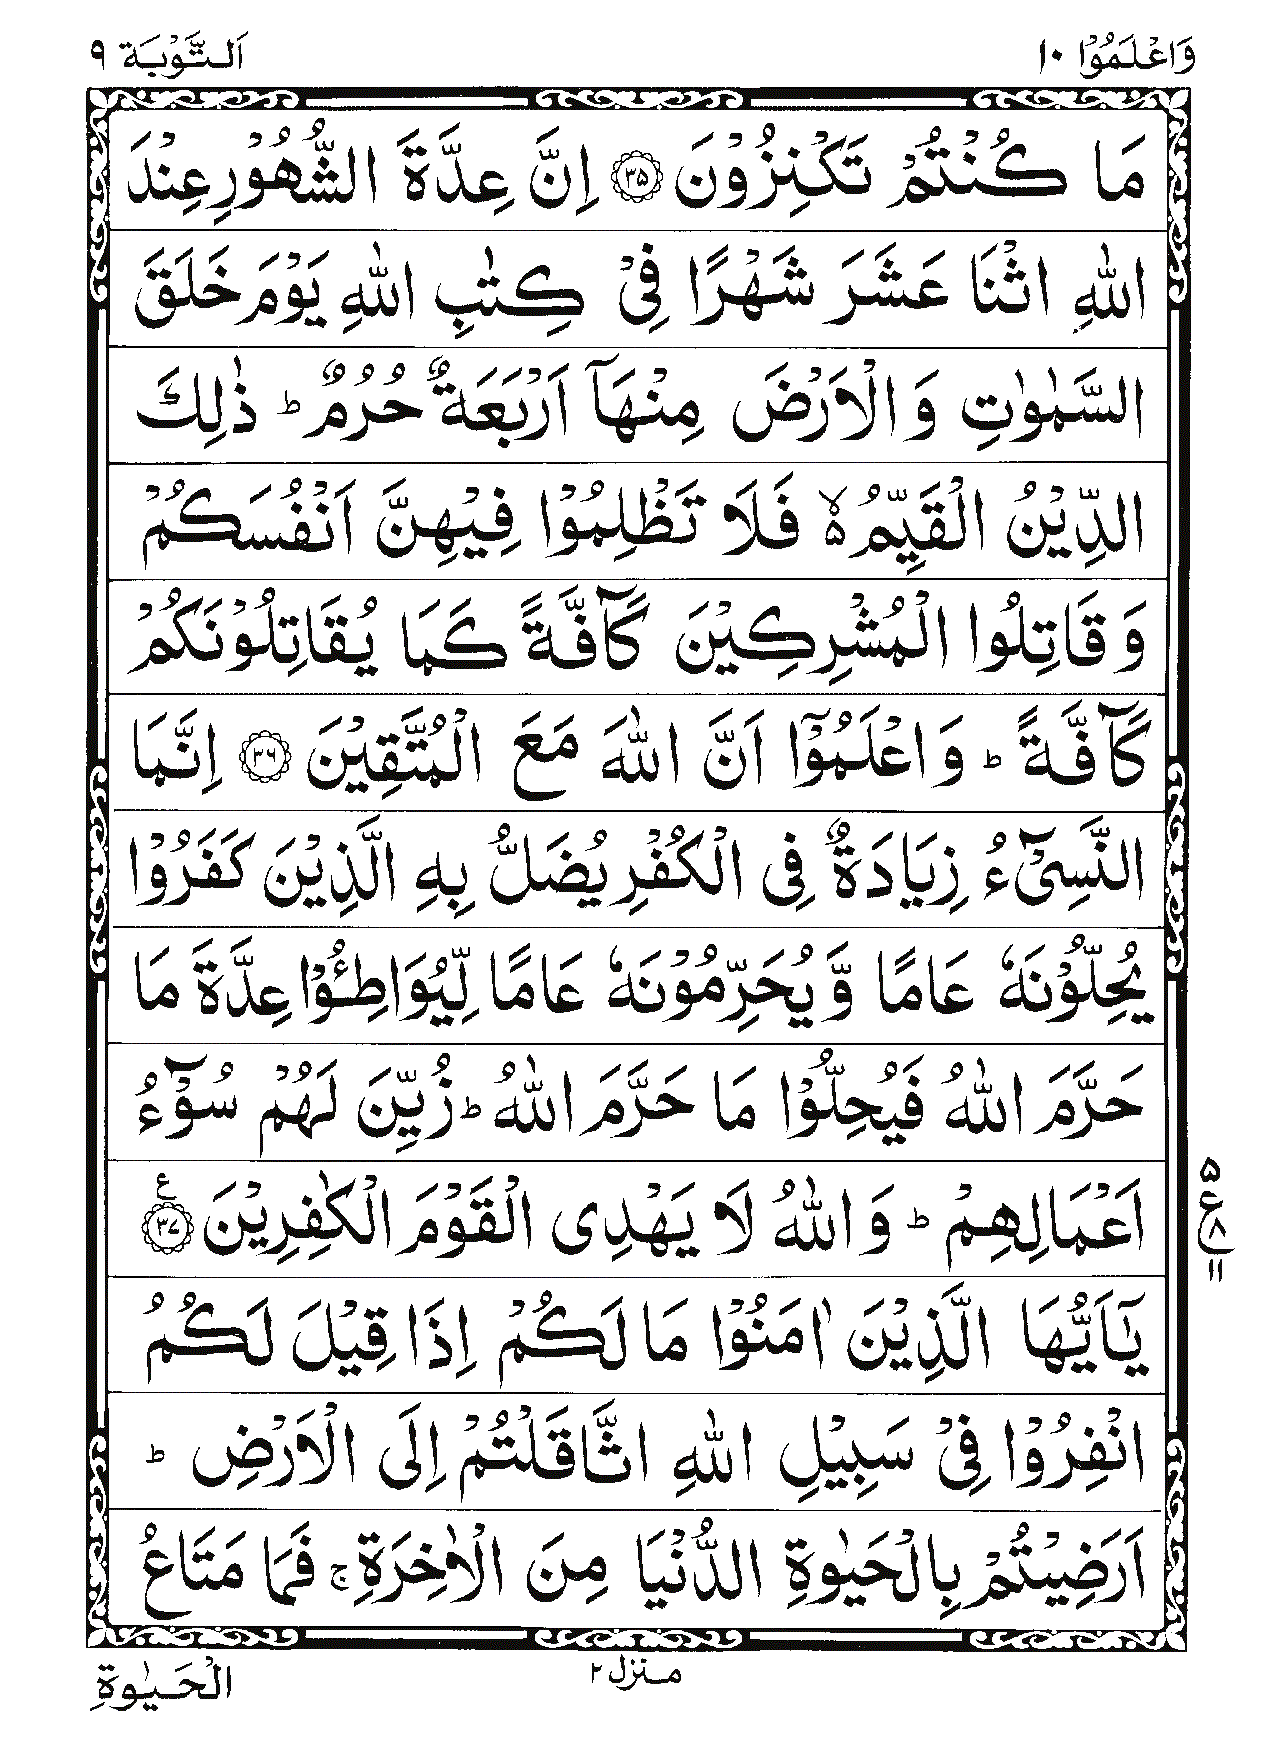 وَاعْلَمُوْۤا ۱۰
اَلتَّوْبَة ۹
مَا كُنْتُمْ تَكْنِزُوْنَ ۳۵ اِنَّ عِدَّةَ الشُّهُوْرِ عِنْدَ
اللّٰهِ اثْنَا عَشَرَ شَهْرًا فِیْ كِتٰبِ اللّٰهِ يَوْمَ خَلَقَ
السَّمٰوٰتِ وَ الْاَرْضَ مِنْهَاۤ اَرْبَعَةٌ حُرُمٌ ؕ ذٰلِكَ
الدِّيْنُ الْقَيِّمُ ۙ۬ فَلَا تَظْلِمُوْا فِيْهِنَّ اَنْفُسَكُمْ
وَ قَاتِلُوا الْمُشْرِكِيْنَ كَآفَّةً كَمَا يُقَاتِلُوْنَكُمْ
كَآفَّةً ؕ وَ اعْلَمُوْۤا اَنَّ اللّٰهَ مَعَ الْمُتَّقِيْنَ ۳۶ اِنَّمَا
النَّسِیْٓءُ زِيَادَةٌ فِی الْكُفْرِ يُضَلُّ بِهِ الَّذِيْنَ كَفَرُوْا
يُحِلُّوْنَهٗ عَامًا وَّ يُحَرِّمُوْنَهٗ عَامًا لِّيُوَاطِـُٔوْا عِدَّةَ مَا
حَرَّمَ اللّٰهُ فَيُحِلُّوْا مَا حَرَّمَ اللّٰهُ ؕ زُيِّنَ لَهُمْ سُوْٓءُ
اَعْمَالِهِمْ ؕ وَ اللّٰهُ لَا يَهْدِی الْقَوْمَ الْكٰفِرِيْنَ ۳۷ ع
۵
ع ۸
۱۱
يٰۤاَيُّهَا الَّذِيْنَ اٰمَنُوْا مَا لَكُمْ اِذَا قِيْلَ لَكُمُ
انْفِرُوْا فِیْ سَبِيْلِ اللّٰهِ اثَّاقَلْتُمْ اِلَی الْاَرْضِ ؕ
اَرَضِيْتُمْ بِالْحَيٰوةِ الدُّنْيَا مِنَ الْاٰخِرَةِ ۚ فَمَا مَتَاعُ
منزل ۲
الْحَيٰوةِ